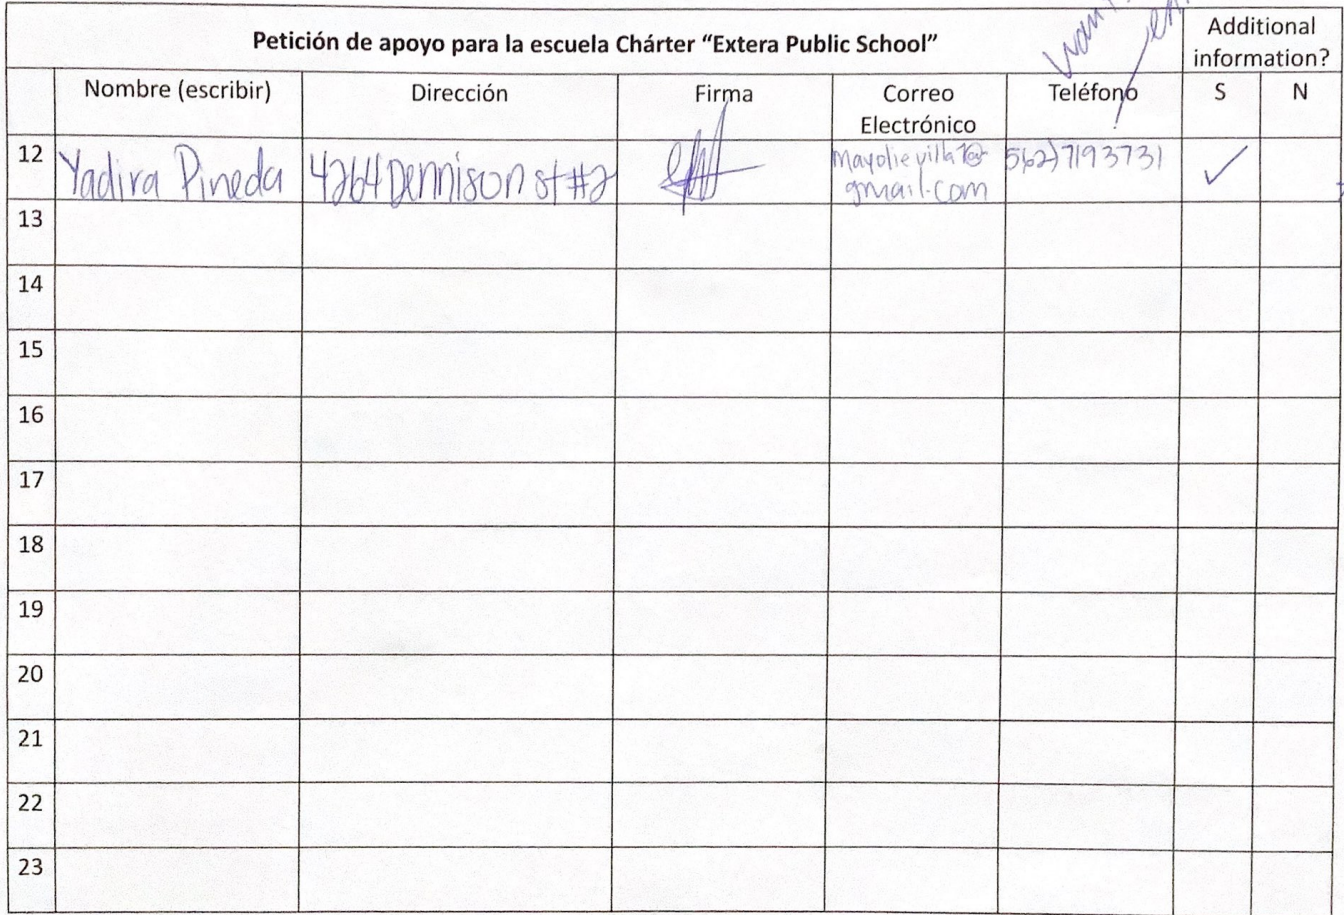 Petición de apoyo para la escuela Chárter “Extera Public School”
Additional
information?
Nombre (escribir) Dirección Firma Correo
Electrónico Teléfono S N
12 Yadira Pineda 4264 Dennison st #2 562)7193731 ✓
gmail.com
13
14
15
16
17
18
19
20
21
22
23